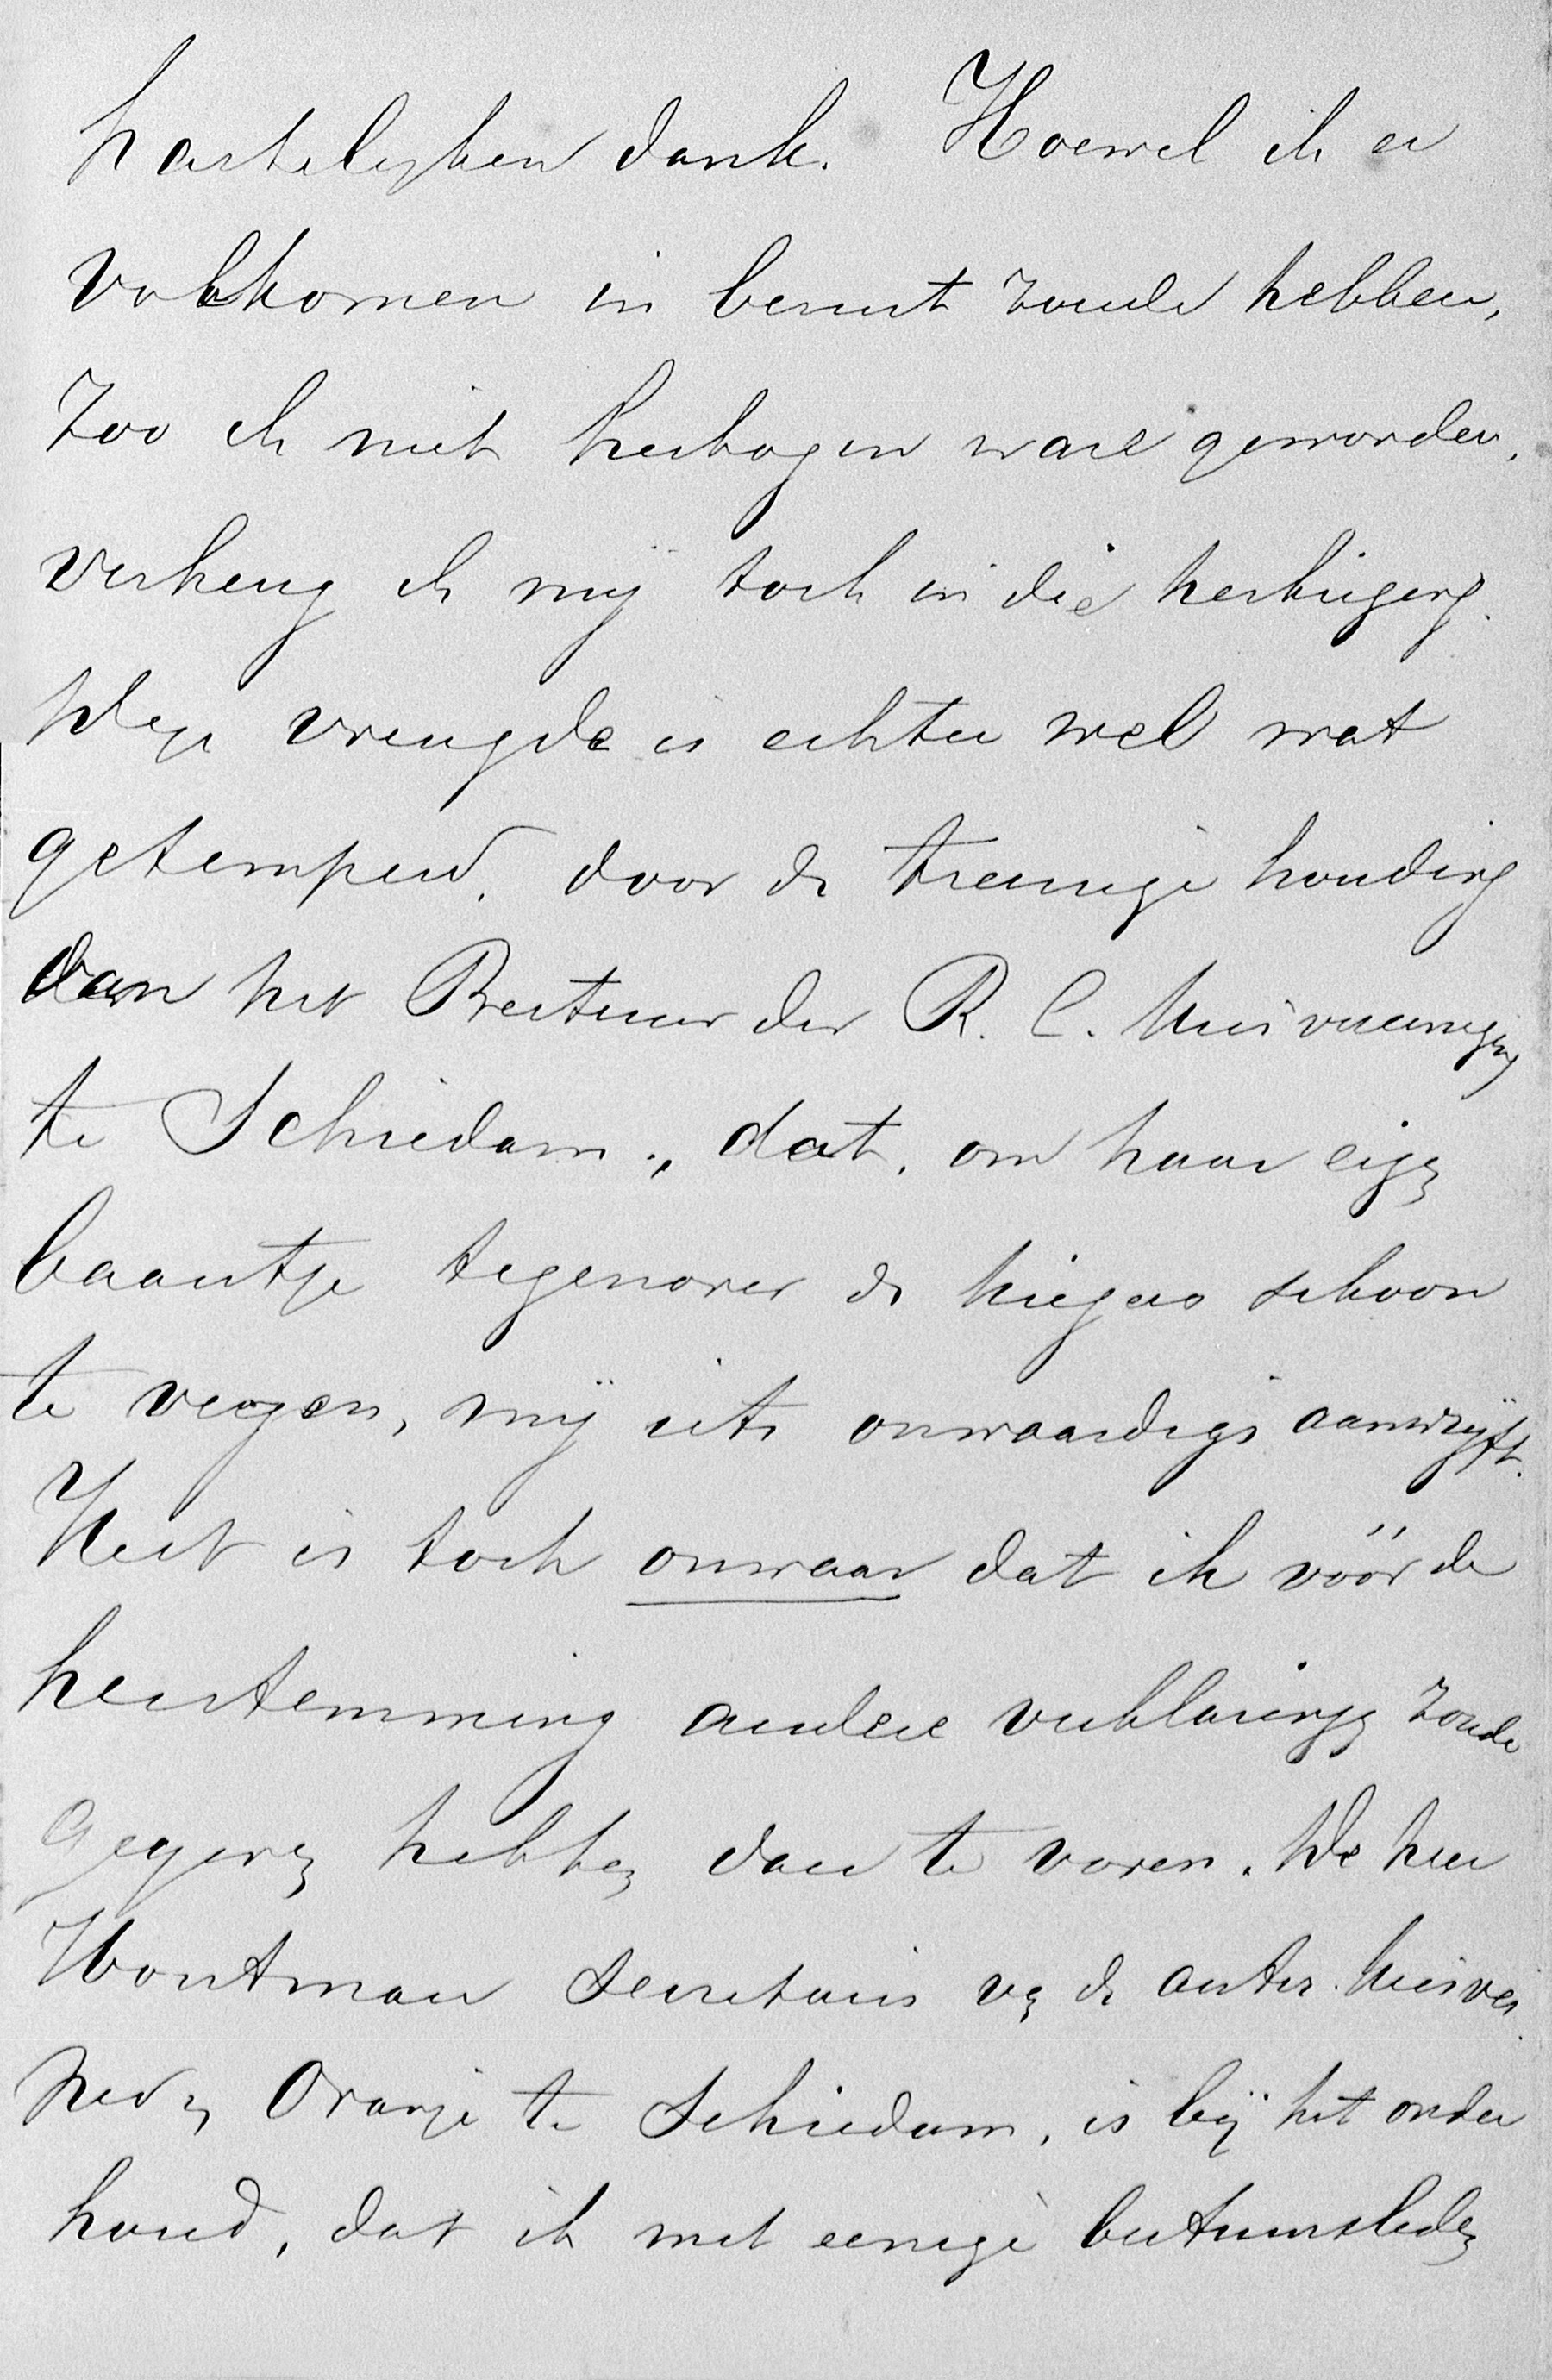 hartelijken dank. Hoewel ik er
volkomen in berust zoude hebben,
zoo ik niet herkozen ware geworden,
verheug ik mij toch in die herkiezing.
Mijn vreugde is echter wel wat
getemperd, door de treurige houding
van het Bestuur der R. C. Kiesvereeniging
te Schiedam, dat, om haar eigen
baantje tegenover de kiezers schoon
te vegen, mij iets onwaardigs aanwrijft.
Het is toch onwaar dat ik vóór de
herstemming andere verklaringen zoude
gegeven hebben dan te voren. De heer
Houtman secretaris van de antir. kiesver.
Ned. en Oranje te Schiedam, is bij het onder
houd, dat ik met eenige bestuursleden